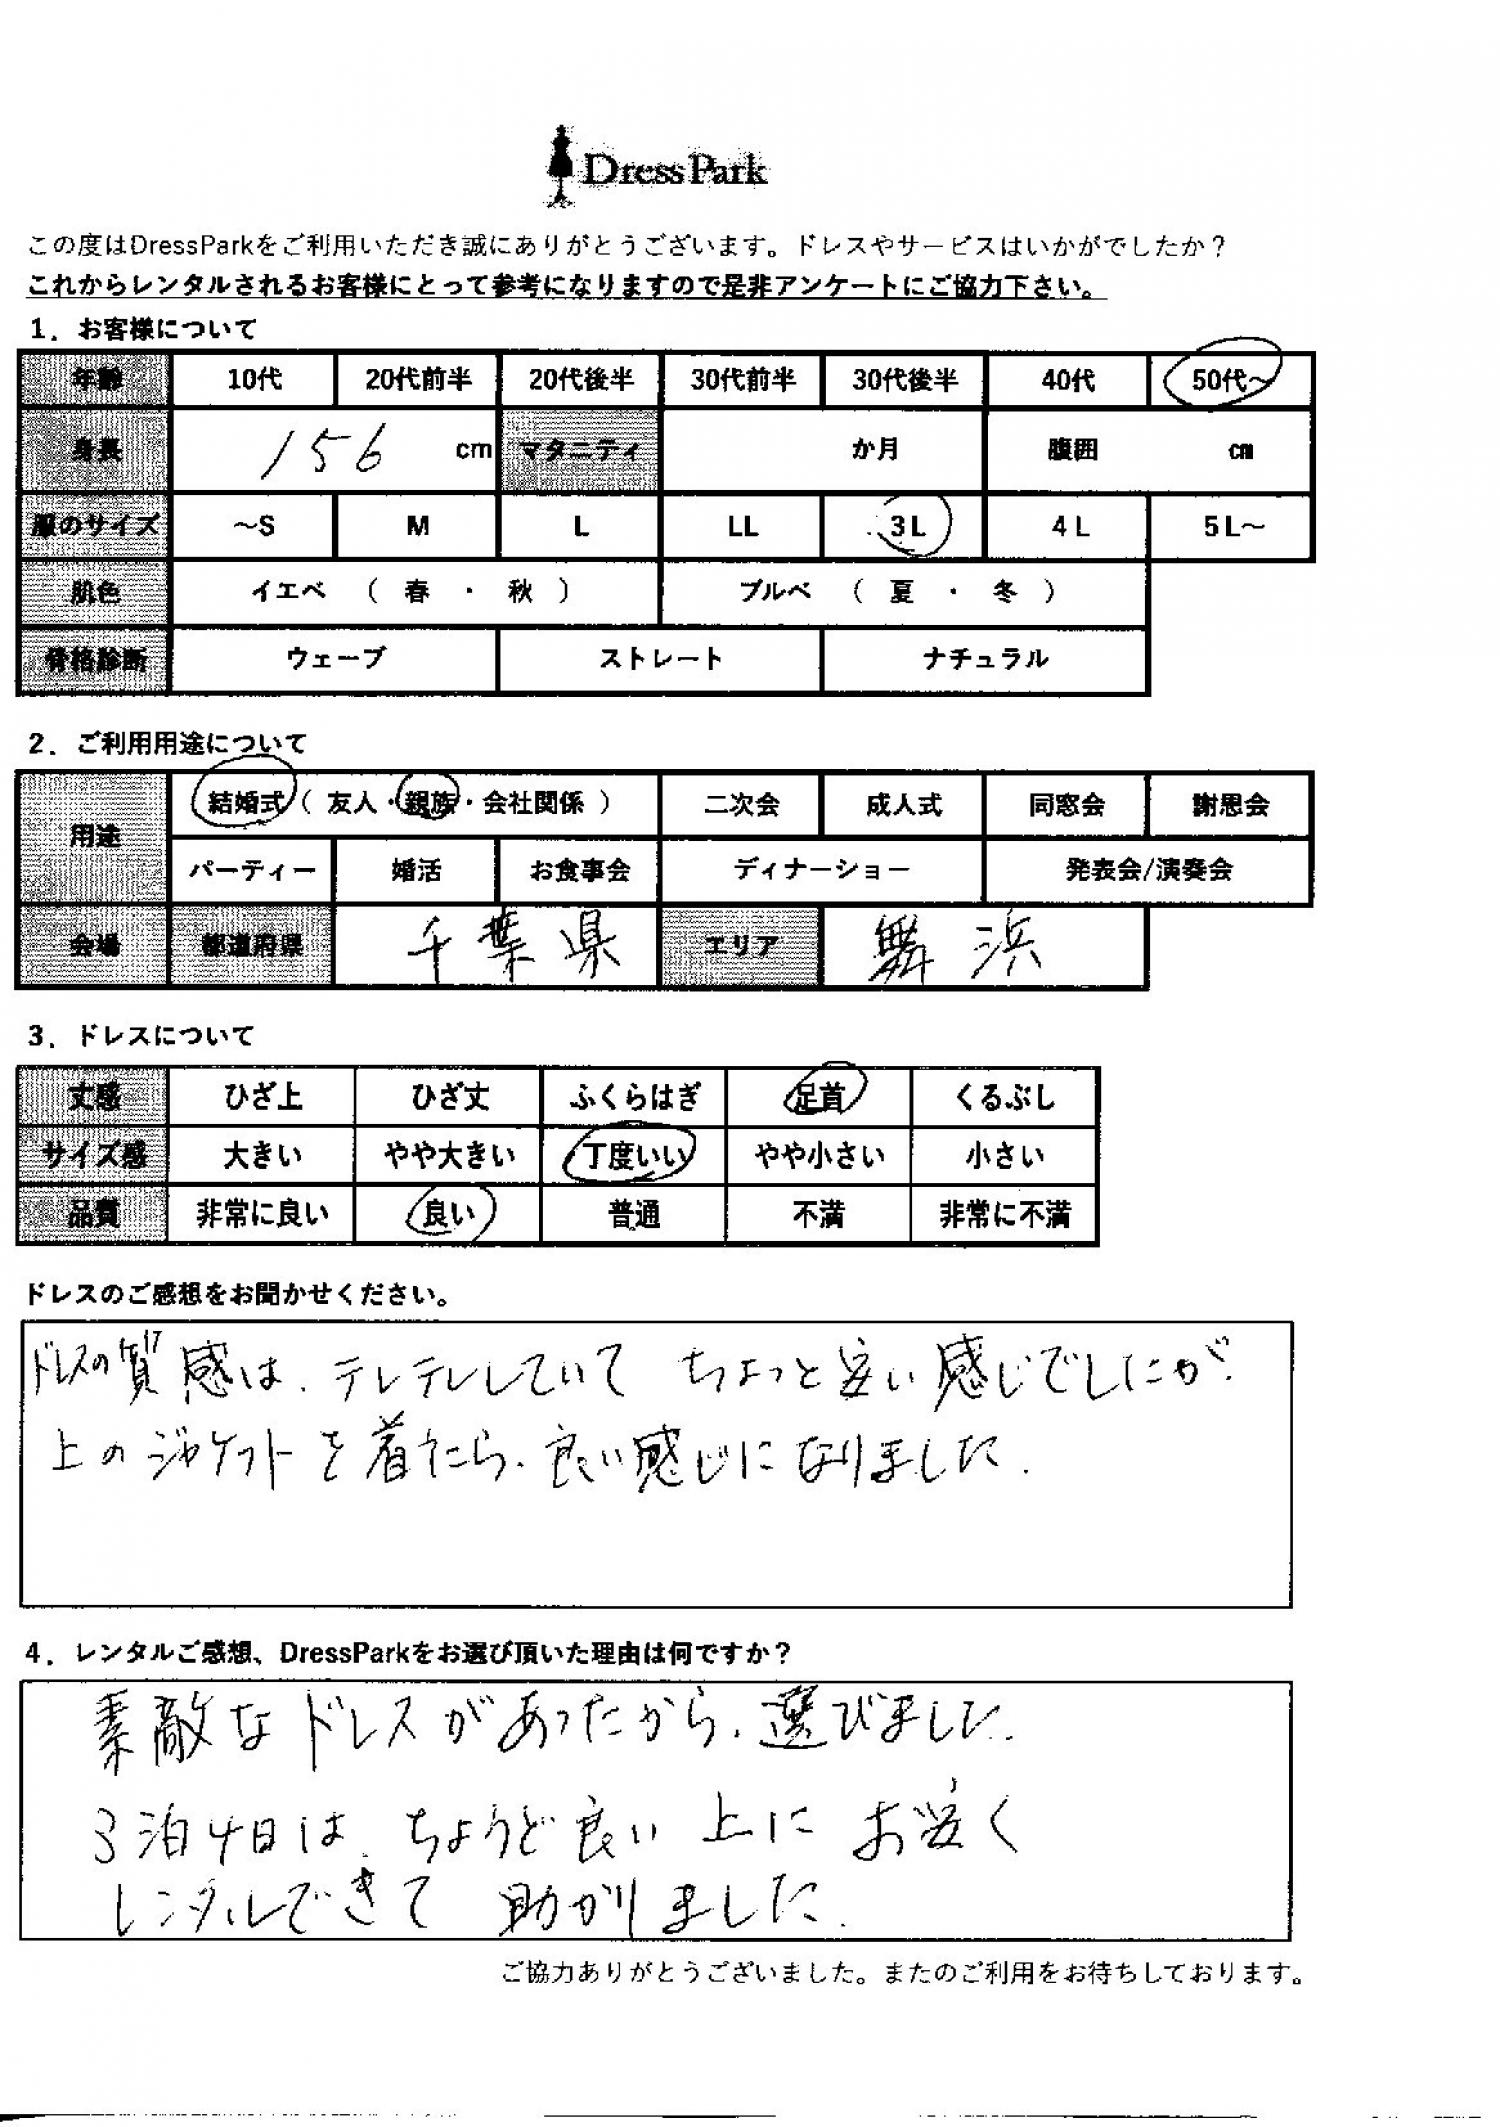 DressPark
この度はDressParkをご利用いただき誠にありがとうございます。ドレスやサービスはいかがでしたか？
これからレンタルされるお客様にとって参考になりますので是非アンケートにご協力下さい。
1．お客様について
年齢 10代 20代前半 20代後半 30代前半 30代後半 40代 50代～
身長 156 cm マタニティ か月 腹囲 cm
服のサイズ ～S M L LL 3L 4L 5L～
肌色 イエベ （ 春 ・ 秋 ） ブルベ （ 夏 ・ 冬 ）
骨格診断 ウェーブ ストレート ナチュラル
2．ご利用用途について
用途 結婚式（ 友人・親族・会社関係 ） 二次会 成人式 同窓会 謝恩会
パーティー 婚活 お食事会 ディナーショー 発表会/演奏会
会場 都道府県 千葉県 エリア 舞浜
3．ドレスについて
丈感 ひざ上 ひざ丈 ふくらはぎ 足首 くるぶし
サイズ感 大きい やや大きい 丁度いい やや小さい 小さい
品質 非常に良い 良い 普通 不満 非常に不満
ドレスのご感想をお聞かせください。
ドレスの質感は、テレテレしていて ちょっと安い感じでしたが、
上のジャケットを着たら、良い感じになりました.
4．レンタルご感想、DressParkをお選び頂いた理由は何ですか？
素敵なドレスがあったから、選びました.
3泊4日は、ちょうど良い上にお安く
レンタルできて 助かりました.
ご協力ありがとうございました。またのご利用をお待ちしております。